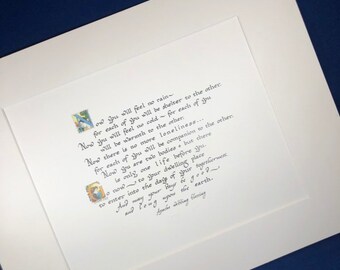 Now you will feel no rain~
for each of you will be shelter to the other.
Now you will feel no cold ~ for each of you
will be warmth to the other.
Now there is no more loneliness...
for each of you will be companion to the other.
Now you are two bodies ~ but there
is only one life before you.
Go now ~ to your dwelling place
to enter into the days of your togetherness
And may your days be good ~
and long upon the earth.
Apache Wedding Blessing